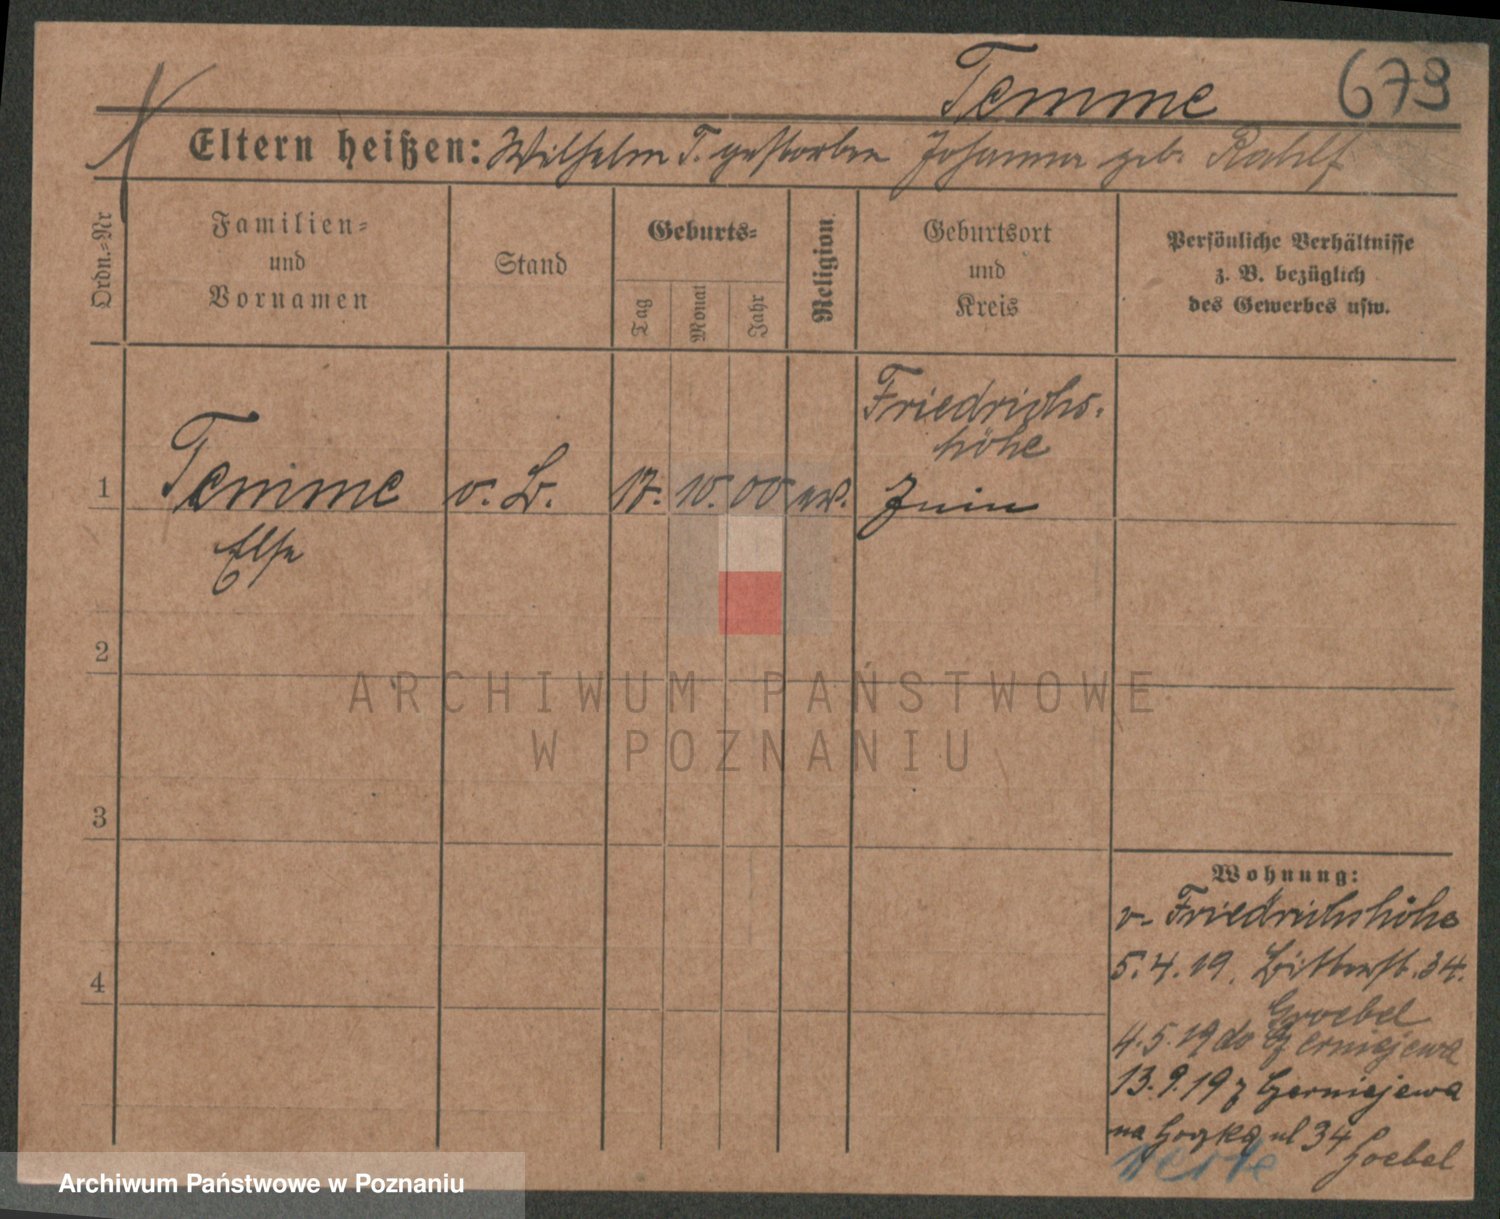 Temme 673
Eltern heißen: Wilhelm T. gestorben Johanna geb. Rahlf
Ordn.-Nr
Familien-
und
Vornamen
Stand
Geburts-
Tag
Monat
Jahr
Religion
Geburtsort
und
Kreis
Persönliche Verhältnisse
z. B. bezüglich
des Gewerbes usw.
Friedrichs-
höhe
1 Temme 17. 10. 00 ev. Znin
Else
2
3
4
Wohnung:
v. Friedrichshöhe
5.4.19. 34.
Groebel
4.5.19 do Czerniejewa
13.9.19 z Czerniejewa
na ul 34 Goebel
ARCHIWUM PAŃSTWOWE
W POZNANIU
Archiwum Państwowe w Poznaniu